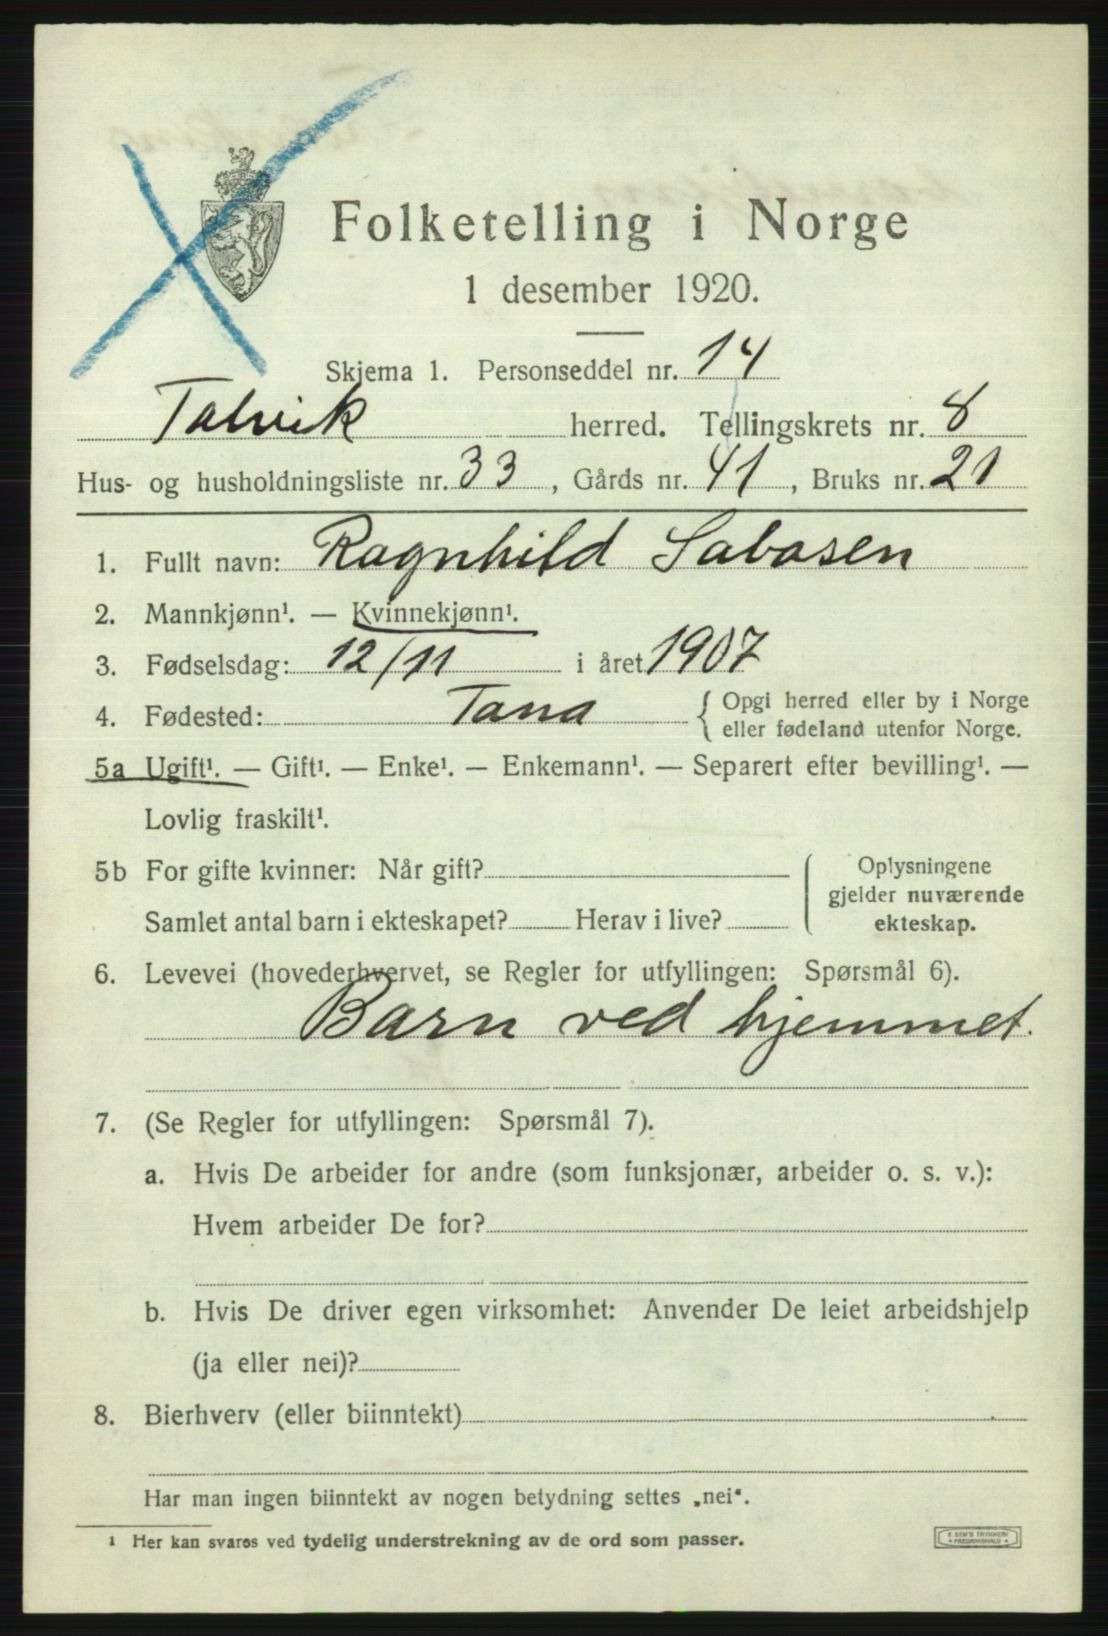 Folketelling i Norge
1 desember 1920.
Skjema 1. Personseddel nr. 14
Talvik herred. Tellingskrets nr. 8
Hus- og husholdningsliste nr. 33, Gårds nr. 41, Bruks nr. 21
1. Fullt navn: Ragnhild Sabasen
2. Mannkjønn¹. — Kvinnekjønn¹.
3. Fødselsdag: 12/11 i året 1907
4. Fødested: Tana { Opgi herred eller by i Norge
eller fødeland utenfor Norge.
5a Ugift¹. — Gift¹. — Enke¹. — Enkemann¹. — Separert efter bevilling¹. —
Lovlig fraskilt¹.
5b For gifte kvinner: Når gift?
Samlet antal barn i ekteskapet? Herav i live?
Oplysningene
gjelder nuværende
ekteskap.
6. Levevei (hovederhvervet, se Regler for utfyllingen: Spørsmål 6).
Barn ved hjemmet.
7. (Se Regler for utfyllingen: Spørsmål 7).
a. Hvis De arbeider for andre (som funksjonær, arbeider o. s. v.):
Hvem arbeider De for?
b. Hvis De driver egen virksomhet: Anvender De leiet arbeidshjelp
(ja eller nei)?
8. Bierhverv (eller biinntekt)
Har man ingen biinntekt av nogen betydning settes „nei“.
¹ Her kan svares ved tydelig understrekning av de ord som passer.